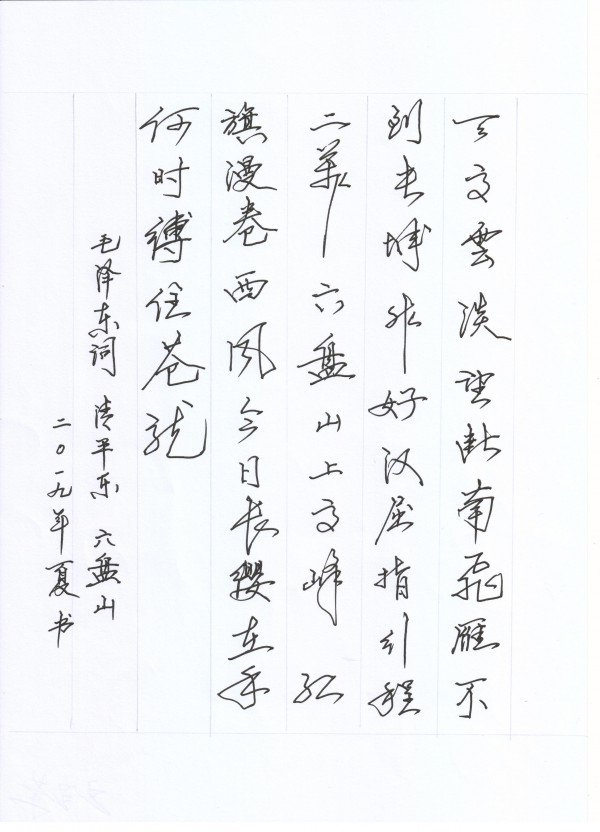 天高雲淡望断南飛雁不
到长城非好汉屈指行程
二萬六盘山上高峰红
旗漫卷西风今日長缨在手
何时缚住苍龍
毛泽东词 清平乐 六盘山
二〇一九年夏书